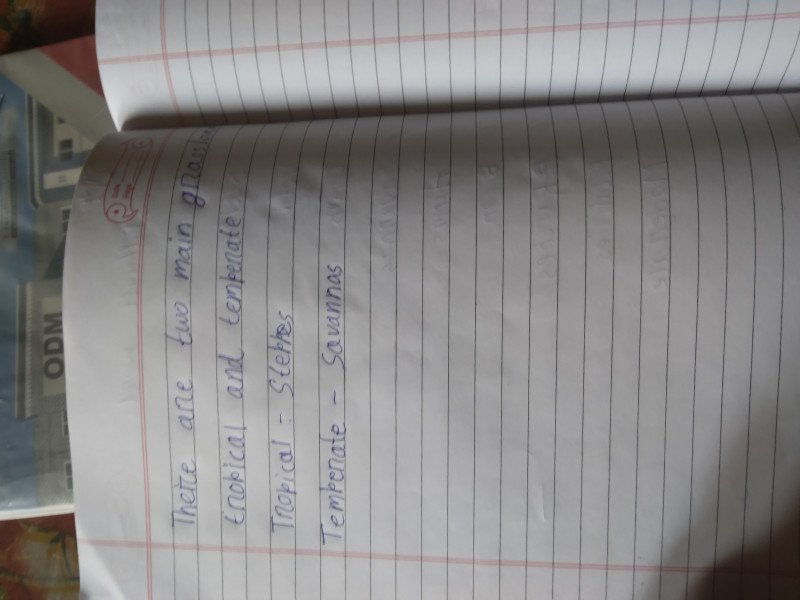 There are two main
tropical and temperate
Tropical - Steppes
Temperate - Savannas
ODM